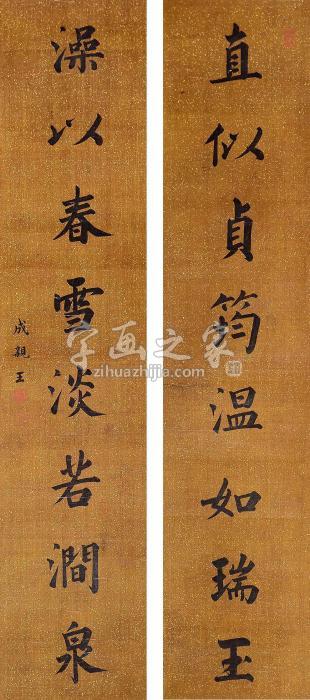 直似貞筠温如瑞玉
澡以春雪淡若澗泉
成親王
字画之家
zihuazhijia.com